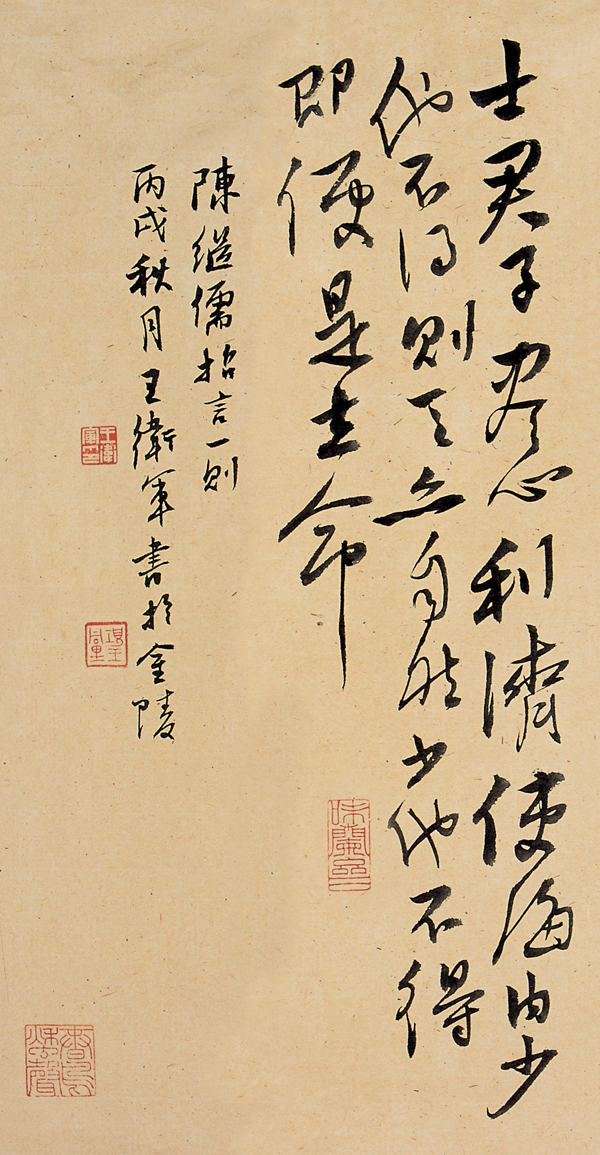 士君子盡心利濟使海内少
他不得則天亦自然少他不得
即便是立命
陳繼儒格言一則
丙戌秋月王衛軍書於金陵
王衛軍印